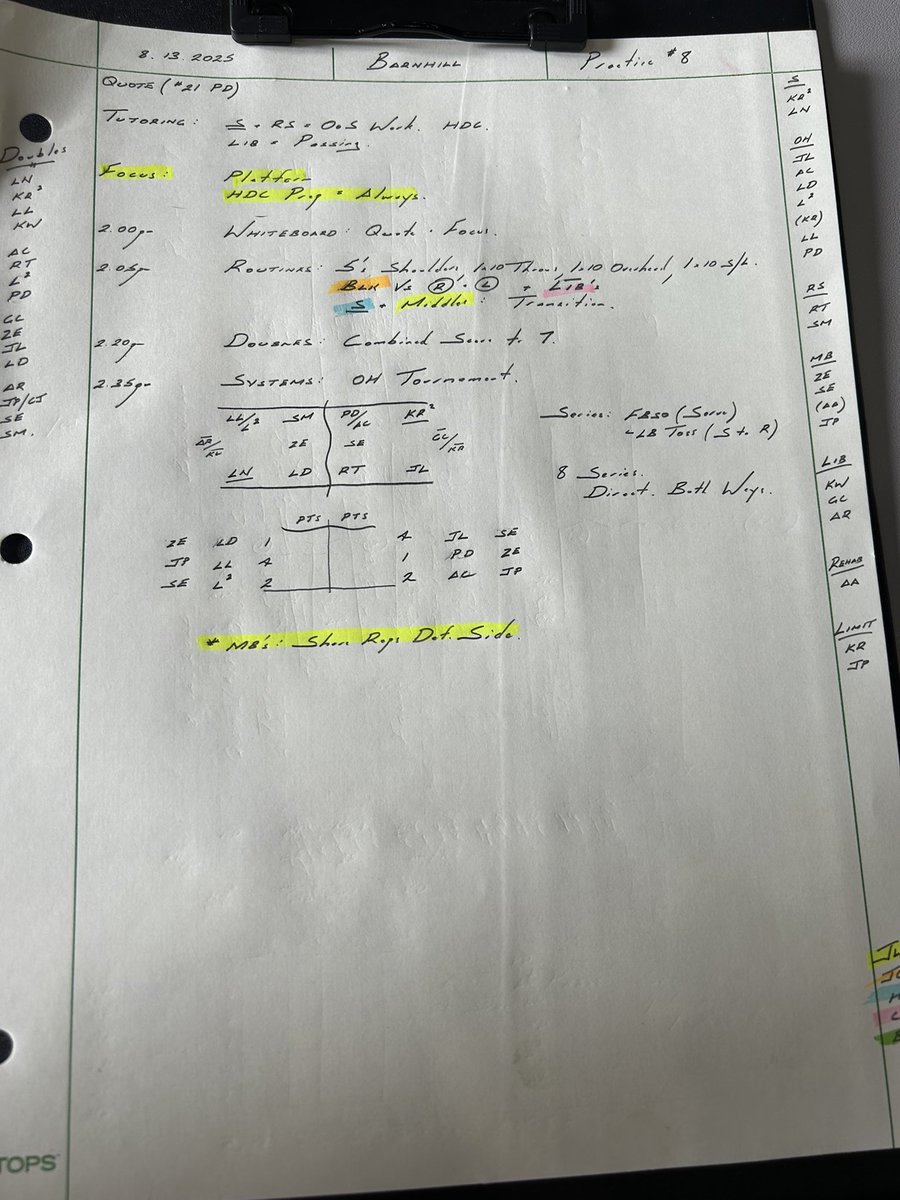 8.13.2025 BARNHILL Practice #8
QUOTE (#21 PD)
TUTORING: S + RS = OOS Work. HDC.
LIB = Passing.
FOCUS: Platform
HDC Prog = Always.
2.00pm WHITEBOARD: Quote + Focus.
2.05pm ROUTINES: 5's, Shoulders, 1x10 Throws, 1x10 Overhead, 1x10 S/L.
BLK VS R + L + LIB's
S + Middles: Transition.
2.20pm DOUBLES: Combined Score to 7.
2.35pm SYSTEMS: OH Tournament.
LL/L² SM PD/AC KR²
ZE SE GC/KR
LN LD RT JL
Series: FBSO (Serve)
LB Toss (S to R)
8 Series.
Direct. Both Ways.
PTS PTS
ZE LD 1 4 JL SE
JP LL 4 1 PD ZE
SE L² 2 2 AC JP
* MB's: Share Reps Def. Side.
Doubles
LN
KR²
LL
KW
AC
RT
L²
PD
GC
ZE
JL
LD
AR
JP/CJ
SE
SM.
S
KR²
LN
OH
JL
AC
LD
L²
(KR)
LL
PD
RS
RT
SM
MB
ZE
SE
(AA)
JP
LIB
KW
GC
AR
REHAB
AA
LIMIT
KR
JP
TOPS